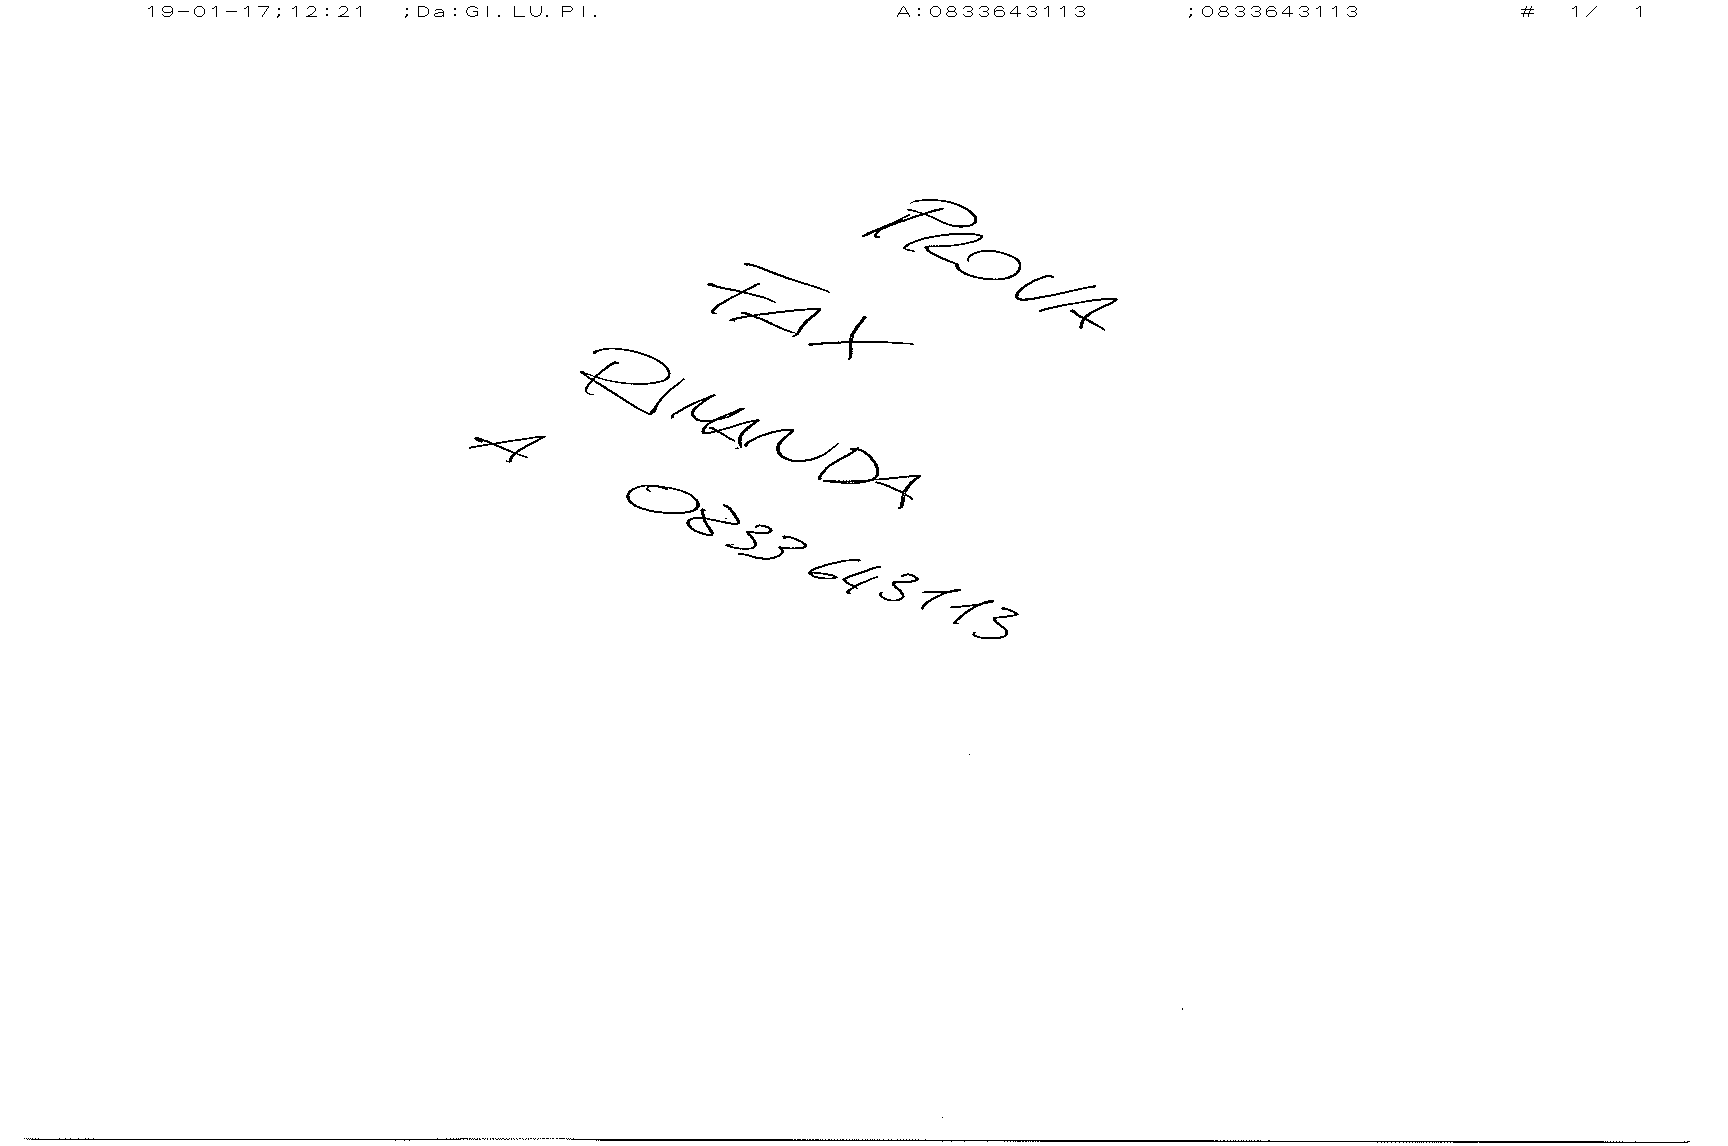 19-01-17;12:21 ;Da:GI.LU.PI. A:0833643113 ;0833643113 # 1/ 1
PROVA
FAX
RIMANDA
A 0833 643113